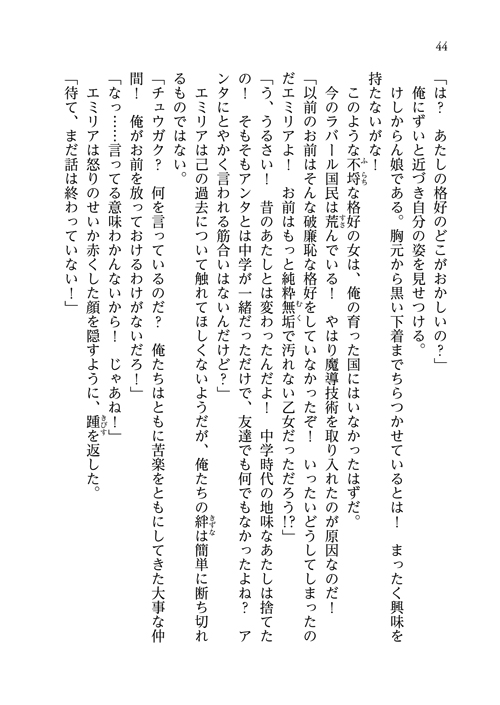 44
「は？　あたしの格好のどこがおかしいの？」
　俺にずいと近づき自分の姿を見せつける。
　けしからん娘である。胸元から黒い下着までちらつかせているとは！　まったく興味を
持たないがな！
　このような不埒な格好の女は、俺の育った国にはいなかったはずだ。
　今のラバール国民は荒んでいる！　やはり魔導技術を取り入れたのが原因なのだ！
「以前のお前はそんな破廉恥な格好をしていなかったぞ！　いったいどうしてしまったの
だエミリアよ！　お前はもっと純粋無垢で汚れない乙女だっただろう!?」
「う、うるさい！　昔のあたしとは変わったんだよ！　中学時代の地味なあたしは捨てた
の！　そもそもアンタとは中学が一緒だっただけで、友達でも何でもなかったよね？　ア
ンタにとやかく言われる筋合いはないんだけど？」
　エミリアは己の過去について触れてほしくないようだが、俺たちの絆は簡単に断ち切れ
るものではない。
「チュウガク？　何を言っているのだ？　俺たちはともに苦楽をともにしてきた大事な仲
間！　俺がお前を放っておけるわけがないだろ！」
「なっ……言ってる意味わかんないから！　じゃあね！」
　エミリアは怒りのせいか赤くした顔を隠すように、踵を返した。
「待て、まだ話は終わっていない！」